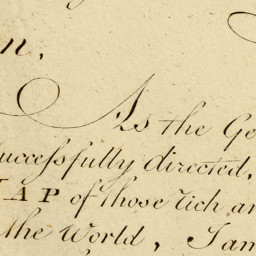 n,
As the Ge
successfully directed,
MAP of those rich an
the World, I am